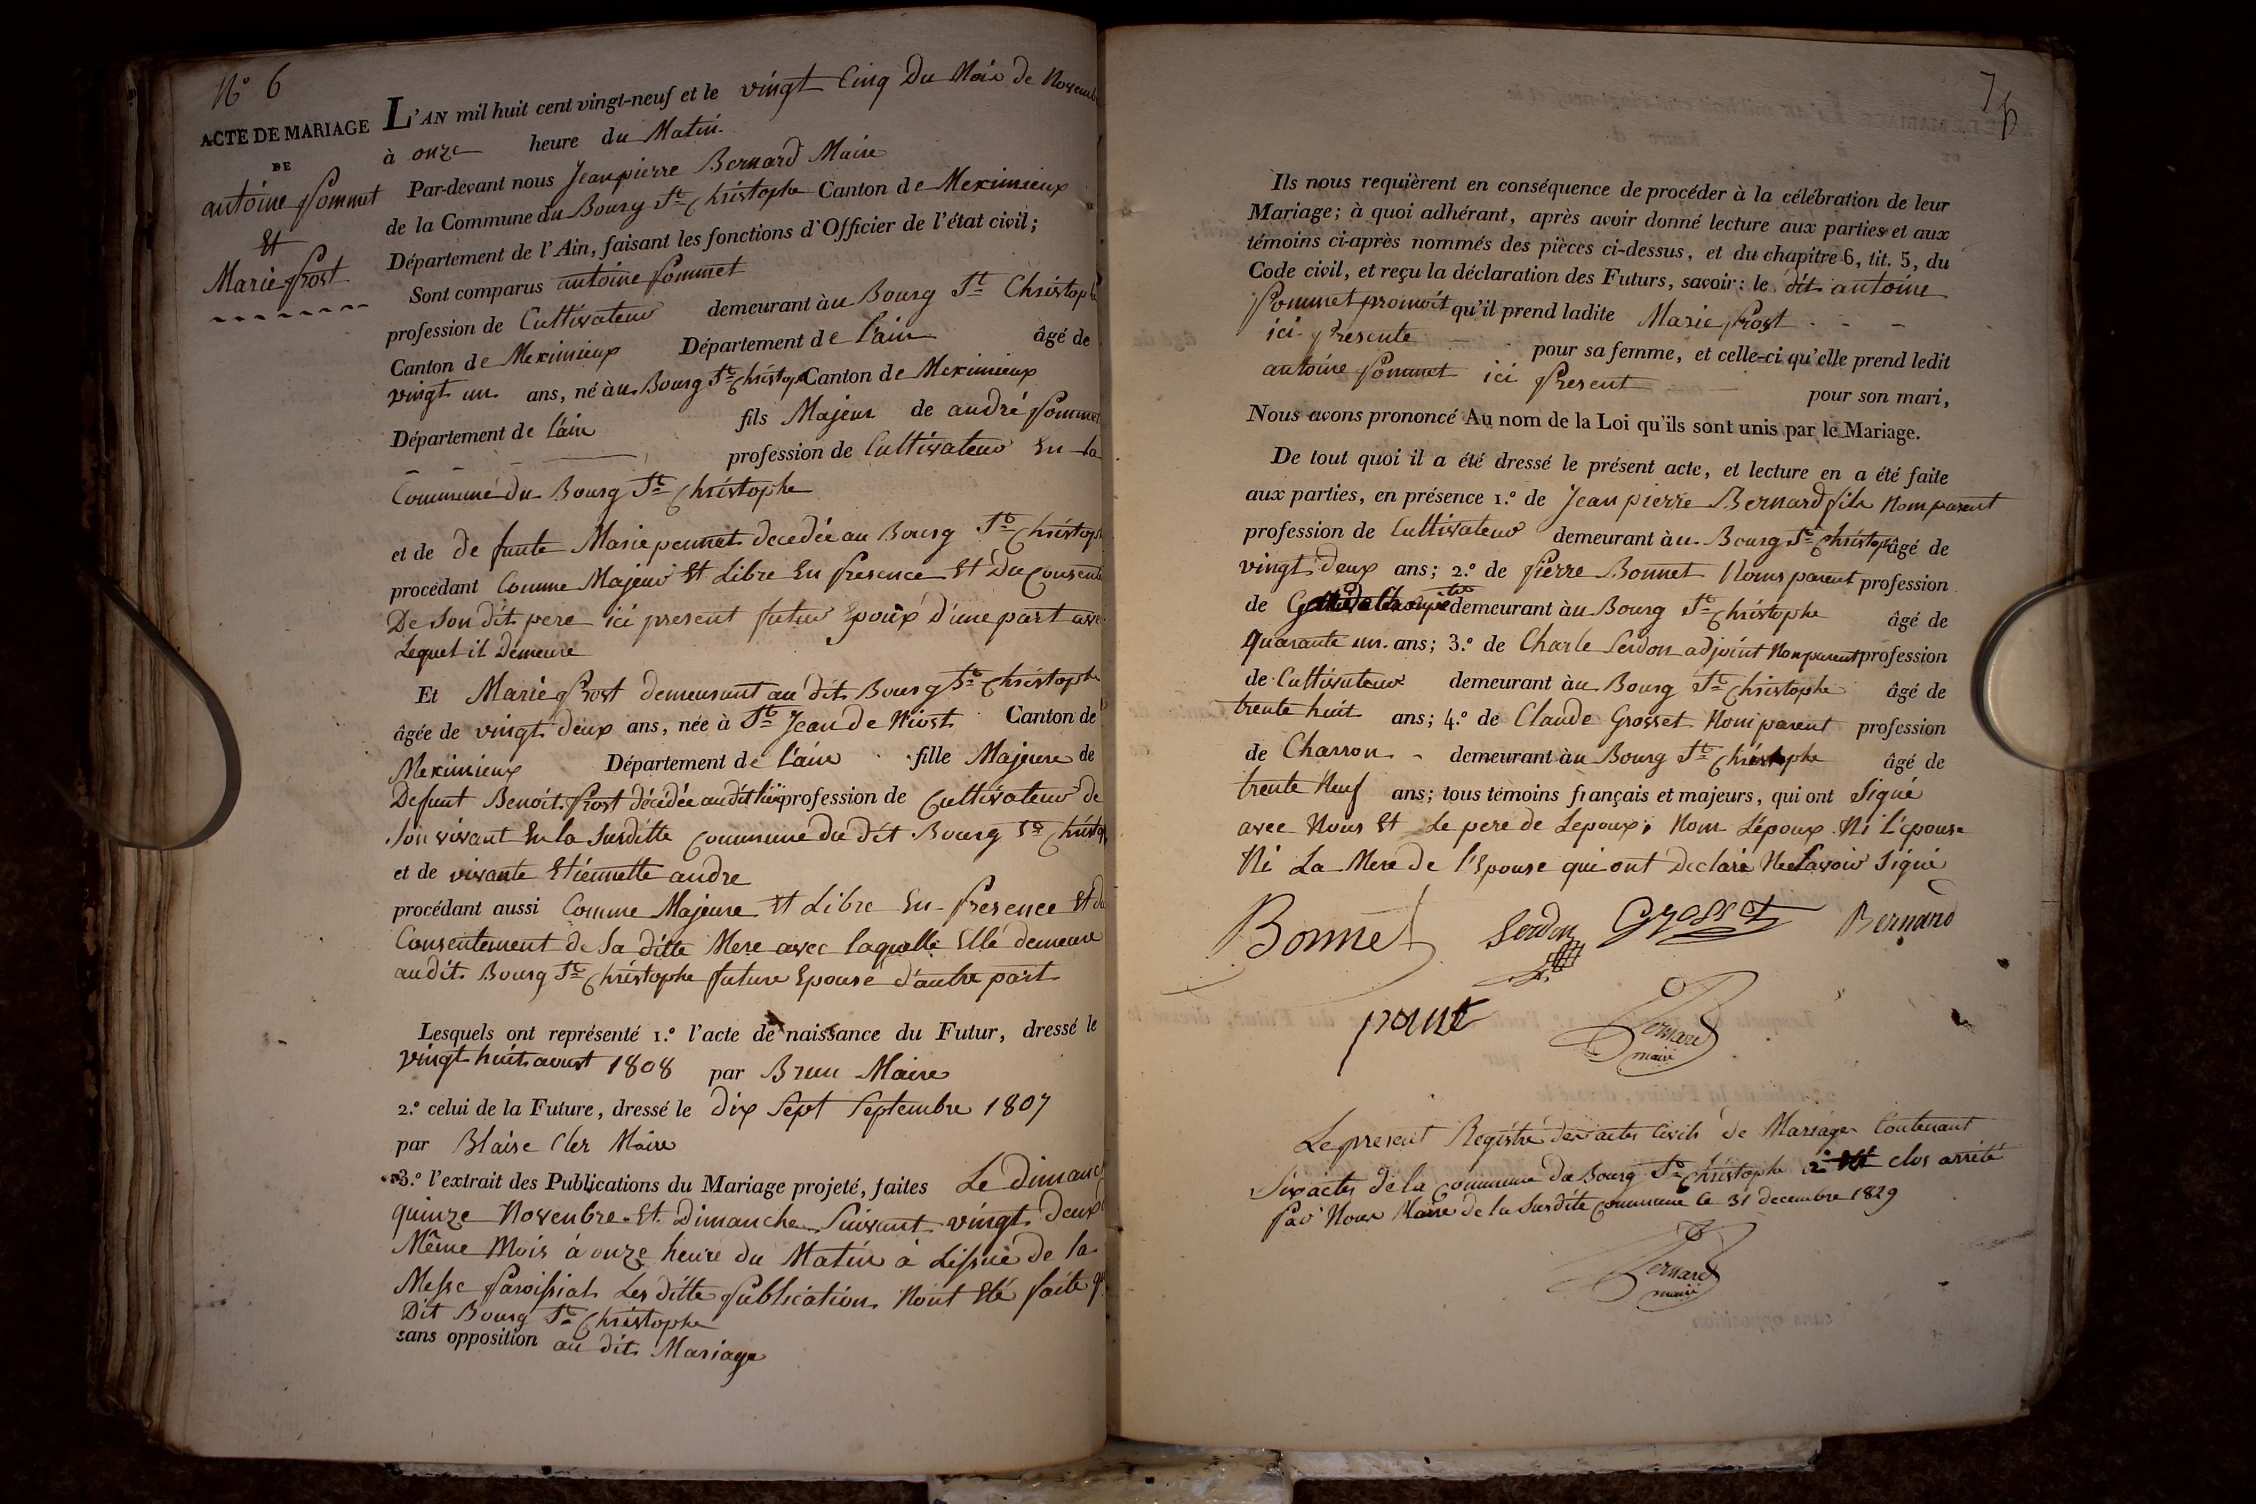 N° 6
ACTE DE MARIAGE
DE
antoine pommet
Et
Marie prost
L'AN mil huit cent vingt-neuf et le vingt Cinq Du Mois de Novemb
à onze heure du Matin
Par-devant nous Jeanpierre Bernard Maire
de la Commune du Bourg St Christophe Canton de Meximieux
Département de l'Ain, faisant les fonctions d'Officier de l'état civil;
Sont comparus antoine pommet
profession de Cultivateur demeurant àu Bourg St Christoph
Canton de Meximieux Département de l'ain âgé de
vingt un ans, né àu Bourg St Christop Canton de Meximieux
Département de l'ain fils Majeur de andré pommet
profession de Cultivateur En la
Commune du Bourg St Christophe
et de defunte Marie pennet decedée au Bourg St Christop
procédant Comme Majeur Et Libre En presence Et Du Consent
De Son dit pere ici present futur Epoux d'une part avec
Lequel il Demeure
Et Marie prost demeurant au dit Bourg St Christophe
âgée de vingt deux ans, née à St Jean de Niost Canton de
Meximieux Département de l'ain fille Majeure de
Defunt Benoit prost décédée audit lieu profession de Cultivateur de
Son vivant En la Susditte Commune du dit Bourg St Christop
et de vivante Etiennette andre
procédant aussi Comme Majeure Et Libre En presence Et du
Consentement de Sa ditte Mere avec laquelle Elle demeure
audit Bourg St Christophe future Epouse d'autre part
Lesquels ont représenté 1.° l'acte de naissance du Futur, dressé le
vingt huit aoust 1808 par Brun Maire
2.° celui de la Future, dressé le dix Sept Septembre 1807
par Blaise Cler Maire
3.° l'extrait des Publications du Mariage projeté, faites Le Dimanc
quinze Novenbre Et Dimanche Suivant vingt deux
Même Mois à onze heure du Matin à Lissue de la
Messe paroissial Les ditte publication Nont Eté faite
Dit Bourg St Christophe
sans opposition au dit Mariage
7
Ils nous requièrent en conséquence de procéder à la célébration de leur
Mariage; à quoi adhérant, après avoir donné lecture aux parties et aux
témoins ci-après nommés des pièces ci-dessus, et du chapitre 6, tit. 5, du
Code civil, et reçu la déclaration des Futurs, savoir: le dit antoine
pommet qu'il prend ladite Marie prost
ici presente pour sa femme, et celle-ci qu'elle prend ledit
antoine pommet ici present pour son mari,
Nous avons prononcé Au nom de la Loi qu'ils sont unis par le Mariage.
De tout quoi il a été dressé le présent acte, et lecture en a été faite
aux parties, en présence 1.° de Jean pierre Bernard fils Nom parent
profession de Cultivateur demeurant àu Bourg St Christop âgé de
vingt deux ans; 2.° de pierre Bonnet Nom parent profession
de demeurant àu Bourg St Christophe âgé de
quarante un ans; 3.° de Charle Serdon adjoint Nonparent profession
de Cultivateur demeurant àu Bourg St Christophe âgé de
trente huit ans; 4.° de Claude Grosset Nom parent profession
de Charron demeurant àu Bourg St Christophe âgé de
trente Neuf ans; tous témoins français et majeurs, qui ont Signé
avec Nous Et Le pere de Lepoux, Nom L'époux Ni L'épouse
Ni La Mere de l'Epouse qui ont Declaré Ne Savoir Signé
Bonnet Serdon Grosset Bernard
Bernard
maire
Le present Registre des actes Civils de Mariage Contenant
Six actes de la Commune du Bourg St Christophe clos arrété
par Nous Maire de la Susdite Commune Ce 31 decembre 1829
Bernard
maire